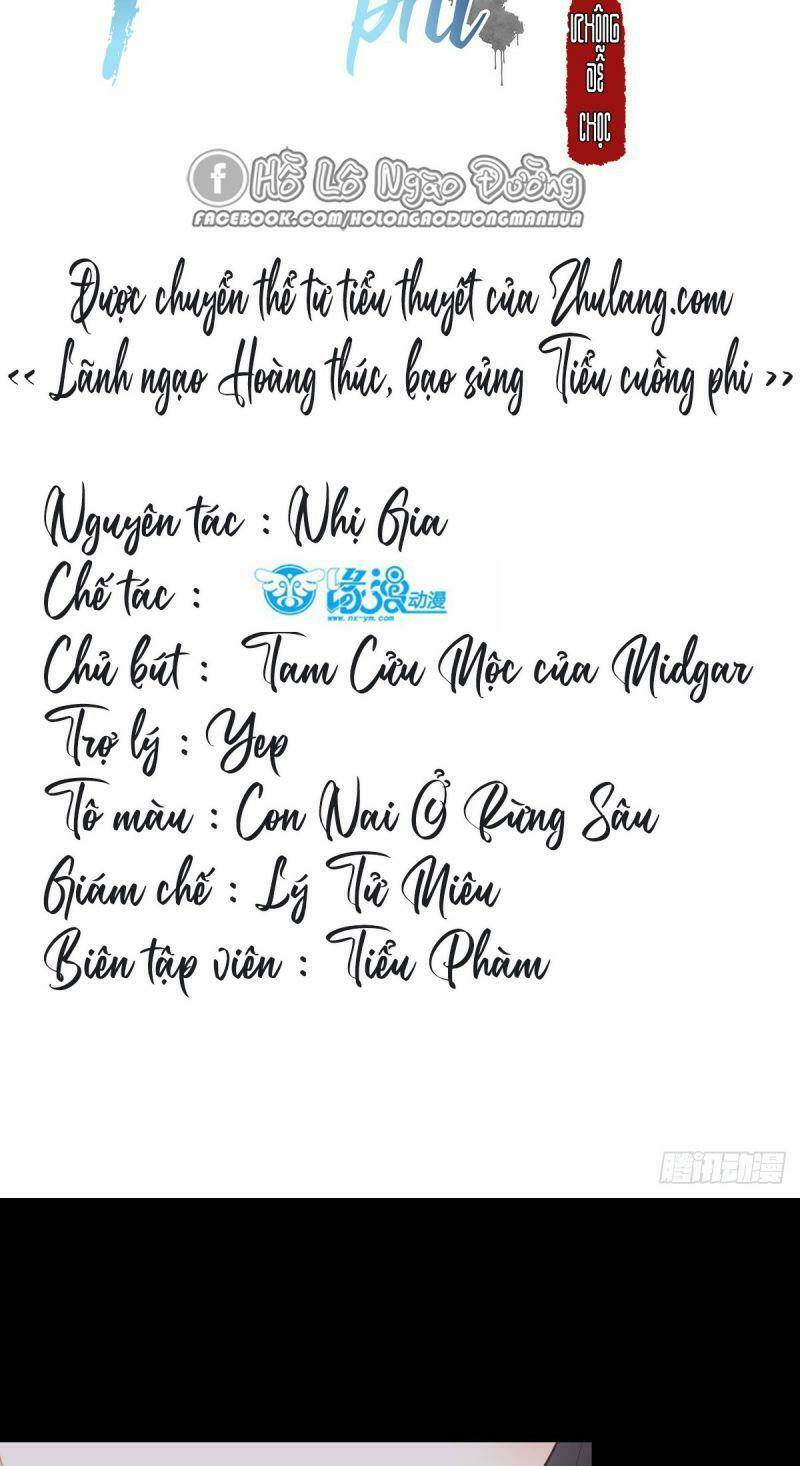 phi
KHÔNG
DỄ
CHỌC
f Hồ Lô Ngào Đường
FACEBOOK.COM/HOLONGAODUONGMANHUA
Được chuyển thể từ tiểu thuyết của Zhulang.com
<< Lãnh ngạo Hoàng thúc, bạo sủng Tiểu cuồng phi >>
Nguyên tác : Nhị Gia
Chế tác : 缘漫动漫
www.nx-ym.com
Chủ bút : Tam Cửu Mộc của Midgar
Trợ lý : Yep
Tô màu : Con Nai Ở Rừng Sâu
Giám chế : Lý Tử Miêu
Biên tập viên : Tiểu Phàm
腾讯动漫